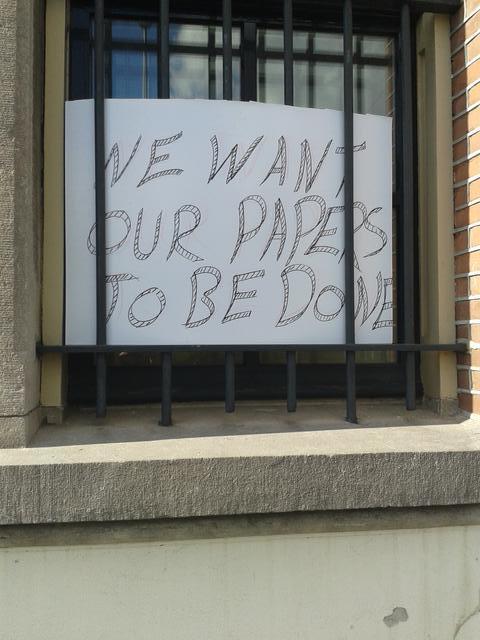 WE WANT
OUR PAPERS
TO BE DONE